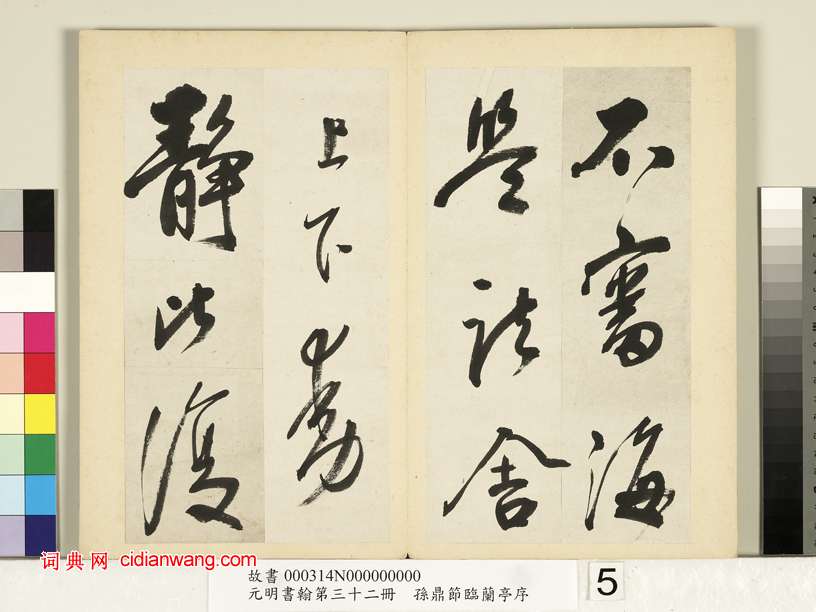 不審海
鹽諸舍
上下動
靜比復
词典网 cidianwang.com
故書 000314N000000000
元明書翰第三十二冊 孫鼎節臨蘭亭序
5